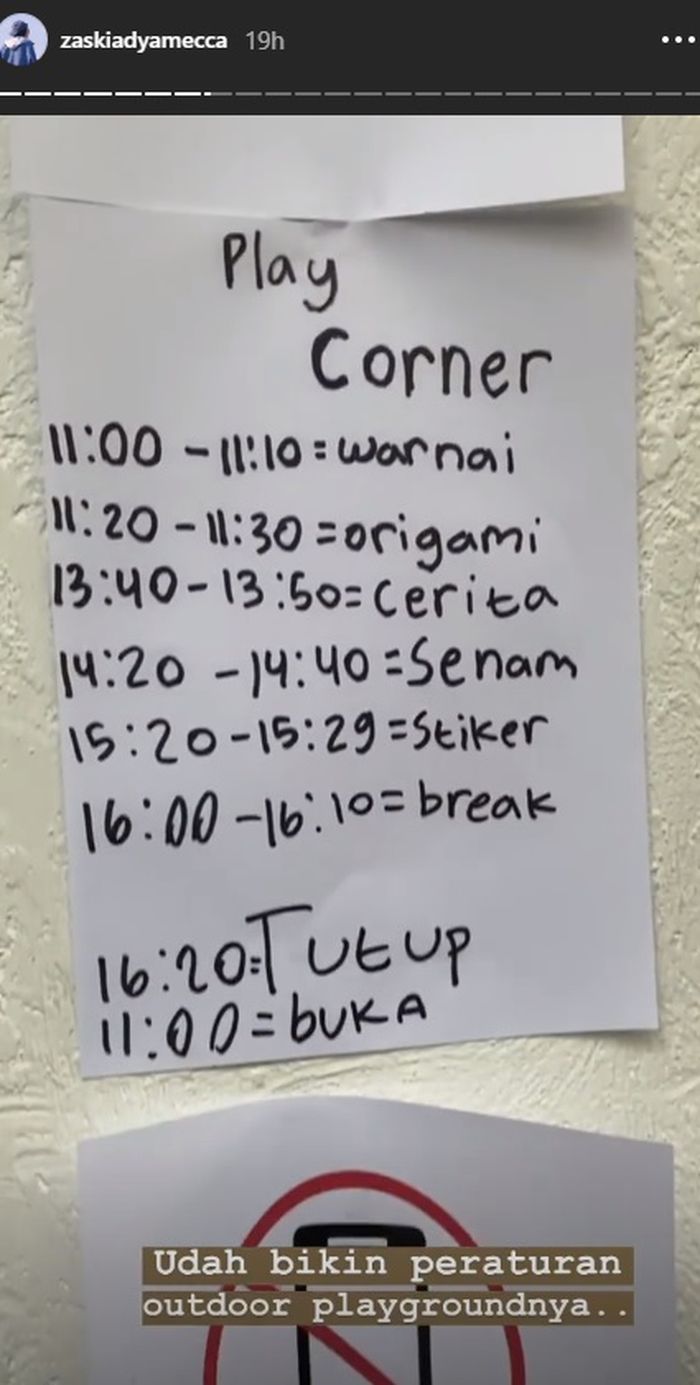 zaskiadyamecca 19h
Play
Corner
11:00 - 11:10 = warnai
11:20 - 11:30 = origami
13:40 - 13:50 = Cerita
14:20 - 14:40 = Senam
15:20 - 15:29 = Stiker
16:00 - 16:10 = break
16:20 = Tutup
11:00 = buKA
Udah bikin peraturan
outdoor playgroundnya..